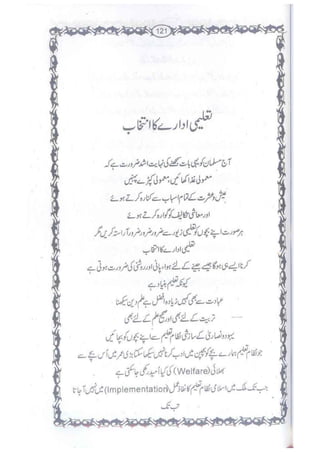 121
تعلیمی ادارے کا انتخاب
آج مسلمان کو یہی بات سمجھنے کی نہایت اشد ضرورت ہے کہ
معمولی غذا کھائیں، معمولی کپڑے پہنیں
عیش و عشرت کے تمام اسباب سے کنارہ کرتے ہوئے
اور معاشی تکالیف کو گوارہ کرتے ہوئے
ہر صورت اپنے بچوں کو تعلیمی زیور سے ضرور ضرور ضرور آراستہ کریں مگر
تعلیمی ادارے کا انتخاب
کرنا ایسے ہی ہوگا جیسے جینے کے لئے ہوا، پانی اور روشنی کی ضرورت ہوتی ہے
کیونکہ تعلیم بنیاد ہے
عبادت سے بھی کہیں زیادہ افضل ہے علم دین سیکھنا
تربیت کے لئے بھی اور صحیح علم کے لئے بھی
یہود و نصاریٰ کے سازشی نظام تعلیم سے اپنے بچوں کو بچائیں
جو نظام تعلیم ہمارے بچے کو بچپن میں ادب کرنا نہیں سیکھا سکتا بڑی عمر میں اُس بچے سے
بھلائی (Welfare) کی کیا اُمید رکھی جاسکتی ہے
جب تک ملک میں اسلامی نظام تعلیم کا نفاذ عمل (Implementation) میں نہیں آ جاتا
تب تک